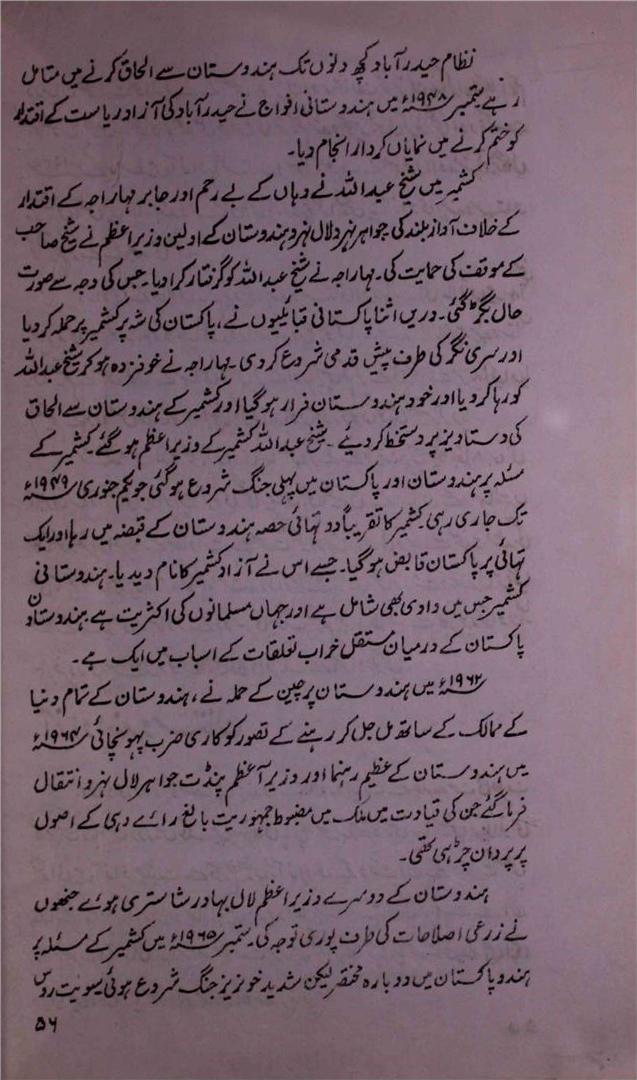 نظام حیدرآباد کچھ دنوں تک ہندوستان سے الحاق کرنے میں متامل
رہے ستمبر ۱۹۴۸ء میں ہندوستانی افواج نے حیدرآباد کی آزاد ریاست کے اقتدار
کو ختم کرنے میں نمایاں کردار انجام دیا۔
کشمیر میں شیخ عبداللہ نے وہاں کے بے رحم اور جابر مہاراجہ کے اقتدار
کے خلاف آواز بلند کی جواہر لال نہرو ہندوستان کے اولین وزیراعظم نے شیخ صاحب
کے موقف کی حمایت کی۔ مہاراجہ نے شیخ عبداللہ کو گرفتار کرادیا۔ جس کی وجہ سے صورت
حال بگڑ گئی۔ دریں اثنا پاکستانی قبائلیوں نے، پاکستان کی شہ پر کشمیر پر حملہ کردیا
اور سری نگر کی طرف پیش قدمی شروع کردی۔ مہاراجہ نے خوفزدہ ہوکر شیخ عبداللہ
کو رہا کردیا اور خود ہندوستان فرار ہوگیا اور کشمیر کے ہندوستان سے الحاق
کی دستاویز پر دستخط کردیئے۔ شیخ عبداللہ کشمیر کے وزیراعظم ہوگئے۔ کشمیر کے
مسئلہ پر ہندوستان اور پاکستان میں پہلی جنگ شروع ہوگئی جو یکم جنوری ۱۹۴۹ء
تک جاری رہی۔ کشمیر کا تقریباً دو تہائی حصہ ہندوستان کے قبضہ میں رہا اور ایک
تہائی پر پاکستان قابض ہوگیا۔ جسے اس نے آزاد کشمیر کا نام دیدیا۔ ہندوستانی
کشمیر جس میں وادی بھی شامل ہے اور جہاں مسلمانوں کی اکثریت ہے ہندوستان
پاکستان کے درمیان مستقل خراب تعلقات کے اسباب میں ایک ہے۔
۱۹۶۲ء میں ہندوستان پر چین کے حملہ نے، ہندوستان کے تمام دنیا
کے ممالک کے ساتھ مل جل کر رہنے کے تصور کو کاری ضرب پہونچائی ۱۹۶۴ء
میں ہندوستان کے عظیم رہنما اور وزیر آعظم پنڈت جواہر لال نہرو انتقال
فرماگئے جن کی قیادت میں ملک میں مضبوط جمہوریت بالغ رائے دہی کے اصول
پر پروان چڑہی تھی۔
ہندوستان کے دوسرے وزیراعظم لال بہادر شاستری ہوئے جنھوں
نے زرعی اصلاحات کی طرف پوری توجہ کی۔ ستمبر ۱۹۶۵ء میں کشمیر کے مسئلہ پر
ہندوپاکستان میں دوبارہ مختصر لیکن شدید خونریز جنگ شروع ہوئی سویت روس
۵۶